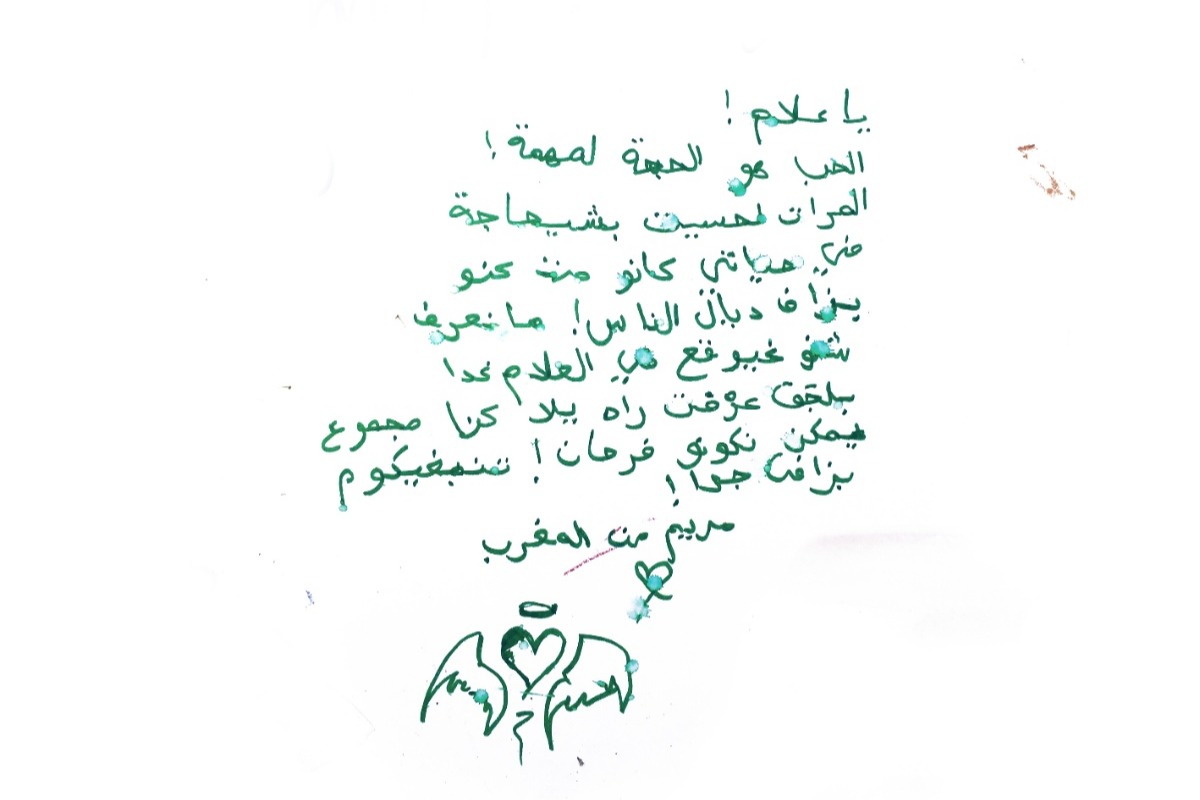 يا علام !
الحب هو الحجة لمهمة !
المرات لحسيت بشيحاجة
في حياتي كانو منف كنو
بزاف ديال الناس! ما نعرف
شنو غيوقع في العلام غدا
بلحق عرفت راه يلا كنا مجموع
يمكن نكونو فرحان ! تنبغيكوم
بزاف جدا !
مريم من المغرب